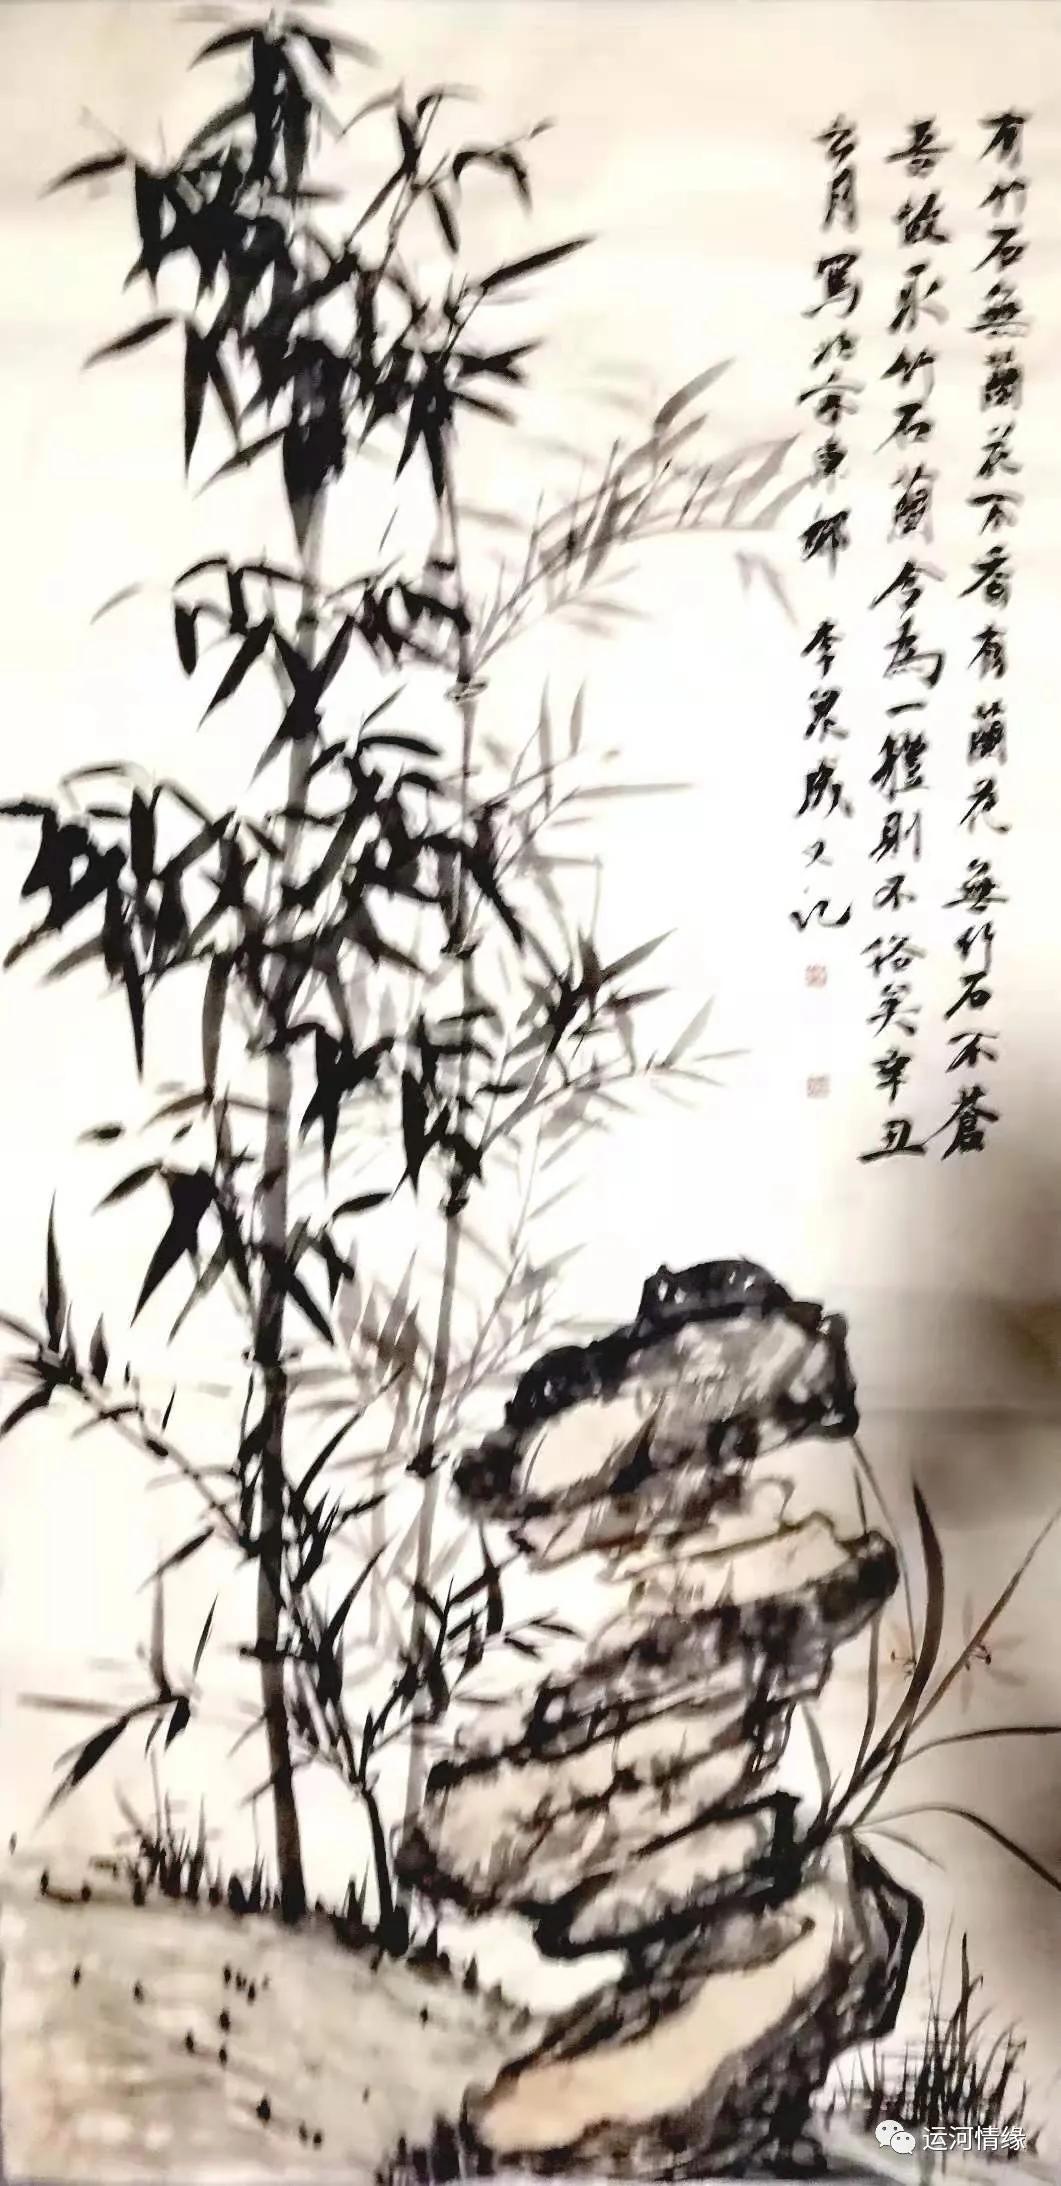 有竹石無蘭花不香有蘭花無竹石不蒼
吾故竹石蘭合為一體則不俗矣辛丑
玄月寫於京東 李成又记
运河情缘